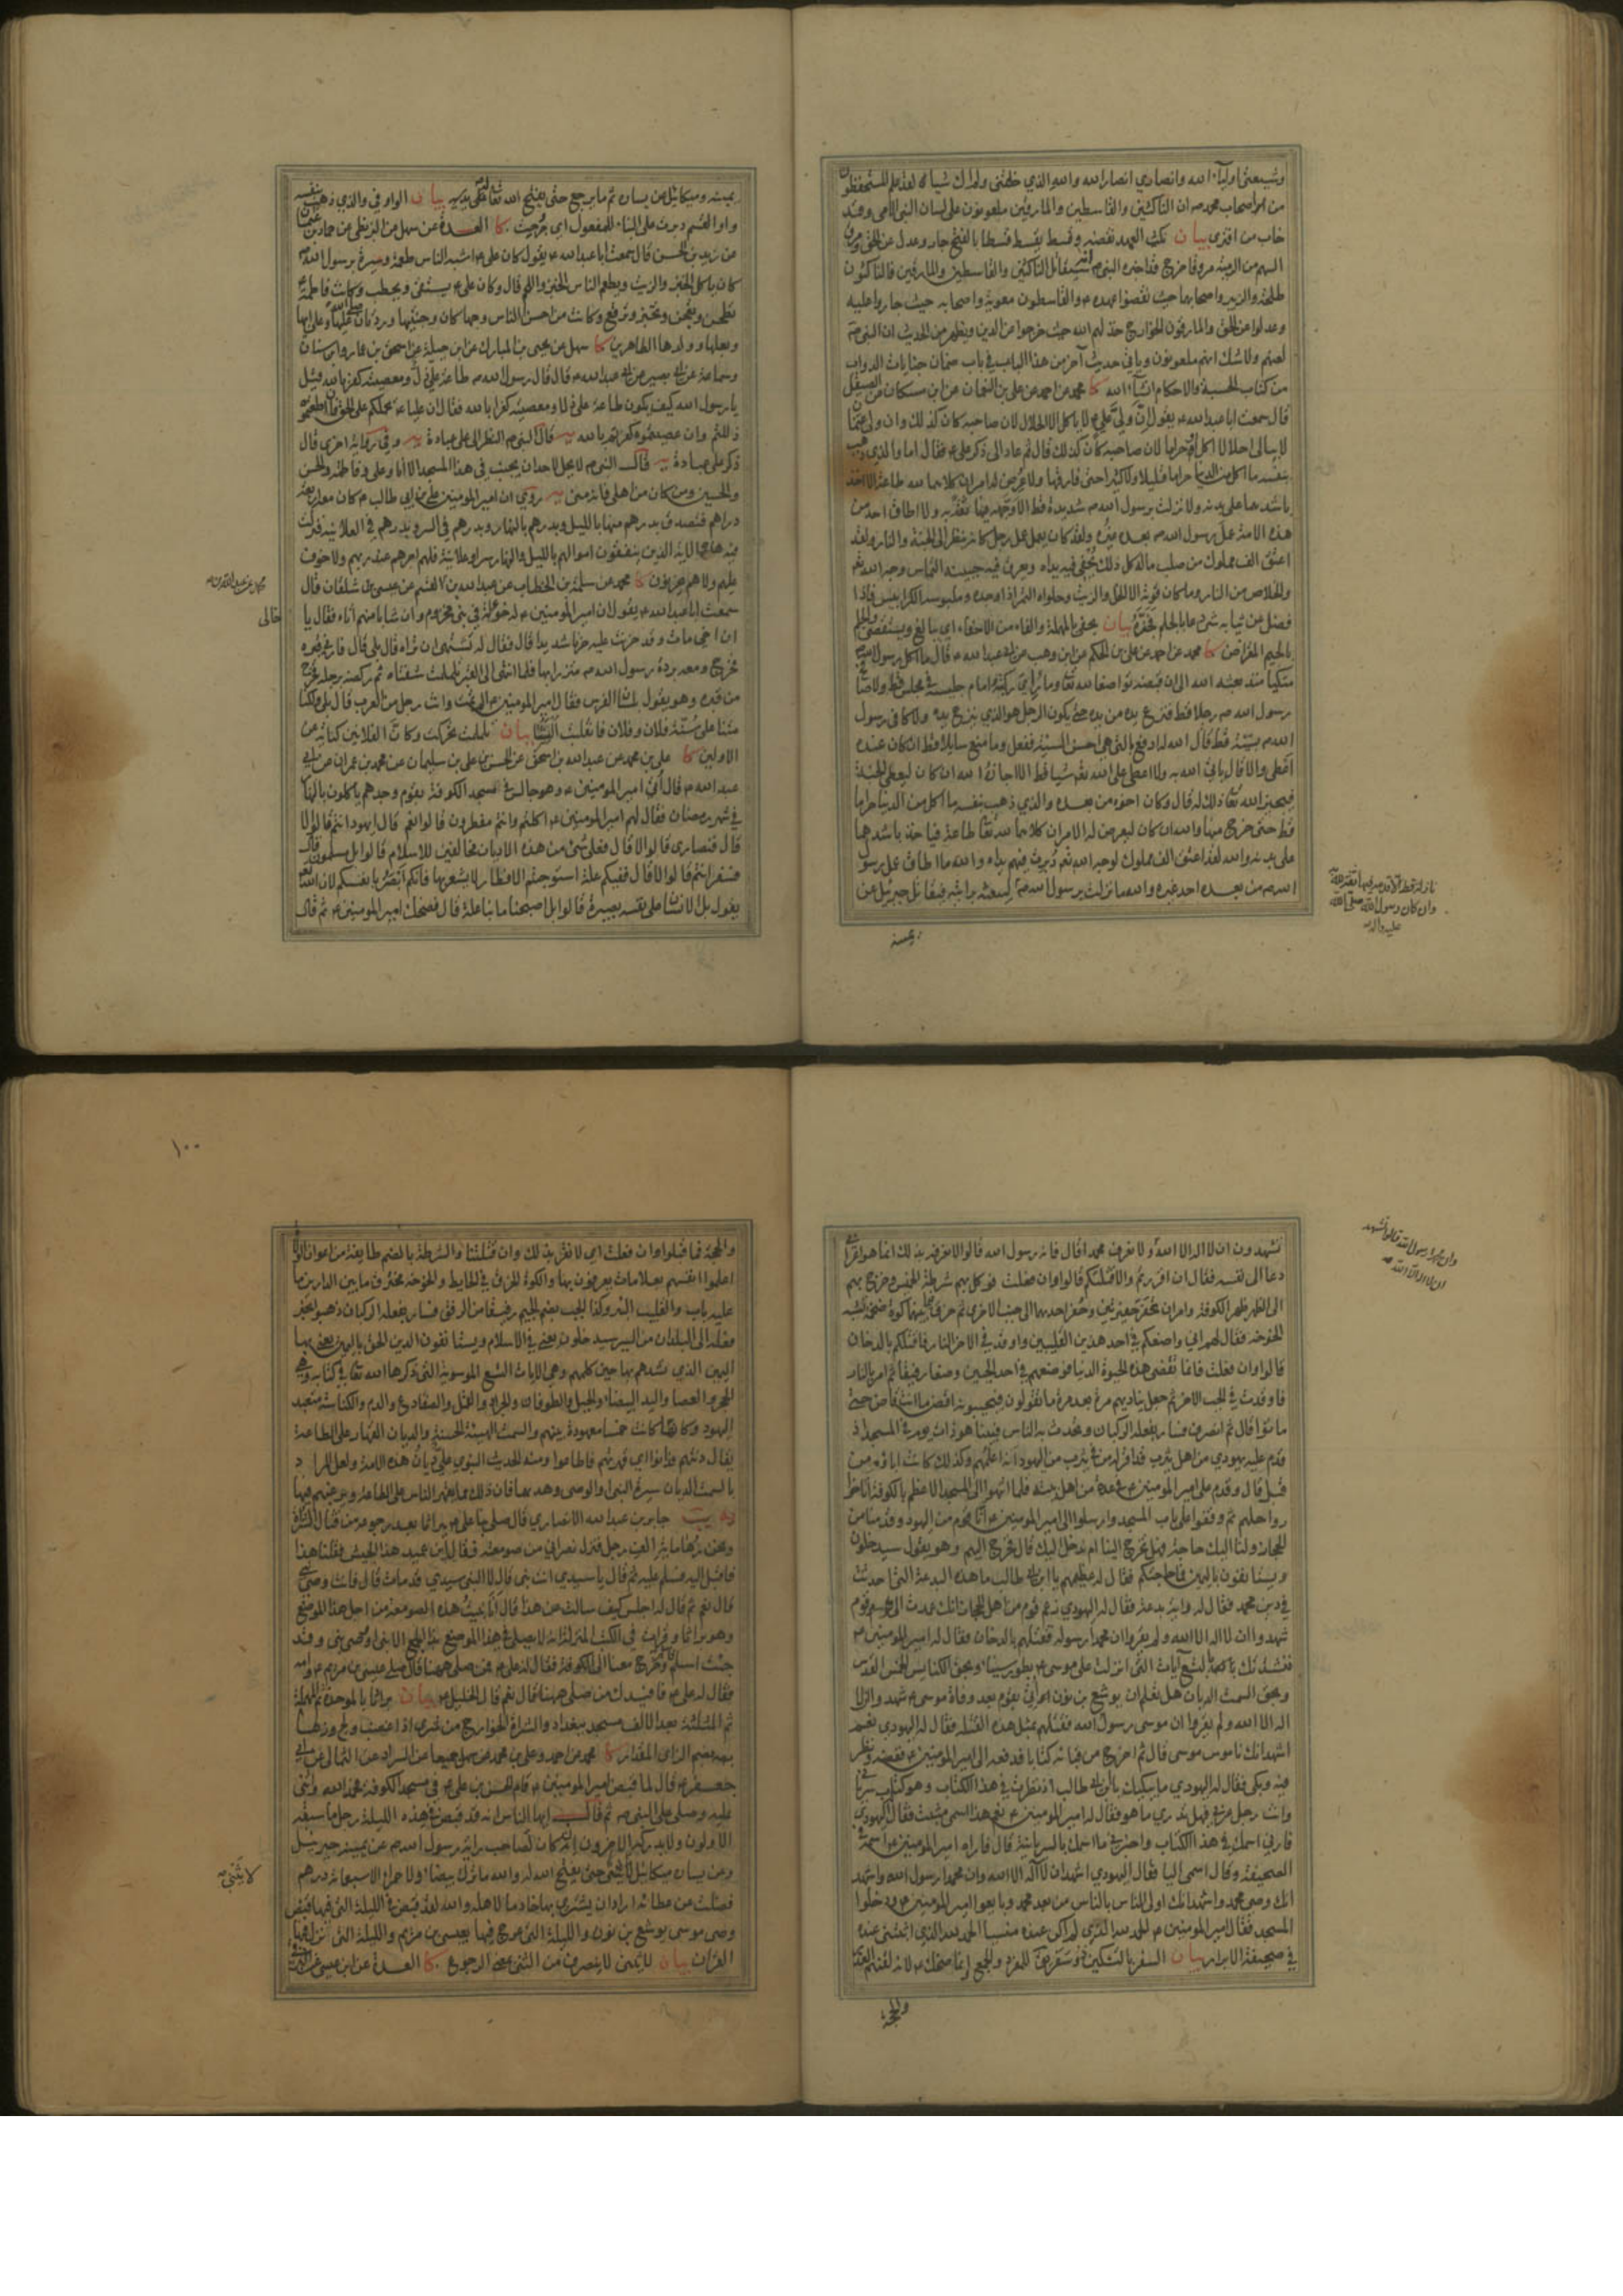 وشيعتي اولياء الله وانصاري انصار الله والله الذي خلقني ولم اك شيئا لقد علم المستحفظون
من اصحاب محمد ص ان الناكثين والقاسطين والمارقين ملعونون على لسان النبي الامي وقد
خاب من افترى بيان نكث العهد نقضه وقسط يقسط قسطا بالفتح جار وعدل عن الحق ومرق
السهم من الرمية مروقا خرج قد اخبره النبي ص انه سيقاتل الناكثين والقاسطين والمارقين فالناكثون
طلحة والزبير واصحابهما حيث نقضوا عهده ع والقاسطون معوية واصحابه حيث جاروا عليه
وعدلوا عن الحق والمارقون الخوارج خذلهم الله حيث خرجوا عن الدين ويظهر من الحديث ان النبي ص
لعنهم ولا شك انهم ملعونون وياتي حديث آخر من هذا الباب في باب ضمان جنايات الدواب
من كتاب الحسبة والاحكام انشاء الله كا محمد عن احمد عن علي بن النعمان عن ابن مسكان عن الصيقل
قال سمعت ابا عبد الله ع يقول ان ولي علي ع لا ياكل الا الحلال لان صاحبه كان كذلك وان ولي عثمان
لا يبالي احلالا اكل او حراما لان صاحبه كان كذلك قال ثم عاد الى ذكر علي ع فقال اما والذي ذهب
بنفسه ما اكل من الدنيا حراما قليلا ولا كثيرا حتى فارقها ولا عرض له امران كلاهما لله طاعة الا اخذ
باشدهما على بدنه ولا نزلت برسول الله ص شديدة قط الا وجهه فيها ثقة به ولا اطاق احد من
هذه الامة عمل رسول الله ص بعده غيره ولقد كان يعمل عمل رجل كانه ينظر الى الجنة والنار ولقد
اعتق الف مملوك من صلب ماله كل ذلك تحفى فيه يداه ويعرق فيه جبينه التماس وجه الله تع
والخلاص من النار وما كان قوته الا الخل والزيت وحلواه التمر اذا وجده وملبوسه الكرابيس فاذا
فضل عن ثيابه شيء دعا بالجلم فجزه بيان تحفى بالمهملة والفاء من الاحفاء اي يبالغ ويستقصى والجلم
بالجيم المقراض كا محمد عن احمد عن علي بن الحكم عن ابن وهب عن ابي عبد الله ع قال ما اكل رسول الله ص
متكيا منذ بعثه الله الى ان قبضه تواضعا لله تعا وما رأى ركبتيه امام جليسه في مجلس قط ولا صافح
رسول الله ص رجلا قط فنزع يده من يده حتى يكون الرجل هو الذي ينزع يده ولا كافى رسول
الله ص بسيئة قط قال الله له ادفع بالتي هي احسن السيئة ففعل وما منع سايلا قط ان كان عنده
اعطى والا قال ياتي الله به ولا اعطى على الله تع شيئا قط الا اجازه الله ان كان ليعطي الجنة
فيجيز الله تعا ذلك له قال وكان اخوه من بعده والذي ذهب بنفسه ما اكل من الدنيا حراما
قط حتى خرج منها والله ان كان ليعرض له الامران كلاهما لله تعا طاعة فياخذ باشدهما
على بدنه والله لقد اعتق الف مملوك لوجه الله تع دبرت فيهم يداه والله ما اطاق عمل رسول
الله ص من بعده احد غيره والله ما نزلت برسول الله ص ليبعثه برايته فيقاتل جبرئيل عن
نازلة قط الا قدمه فيها ثقة به منه
وان كان رسول الله صلى الله
عليه واله
يمينه
يمينه وميكائيل عن يساره ثم ما يرجع حتى يفتح الله تعا له على يديه بيان الواو في والذي ذهب بنفسه
واو القسم دبرت على البناء للمفعول اي جرحت كا العدة عن سهل عن البزنطي عن حماد بن عثمن
عن زيد بن الحسن قال سمعت ابا عبد الله ع يقول كان علي ع اشبه الناس طعمة وسيرة برسول الله ص
كان ياكل الخبز والزيت ويطعم الناس الخبز واللحم قال وكان علي ع يستقي ويحطب وكانت فاطمة ع
تطحن وتعجن وتخبز وترقع وكانت من احسن الناس وجها كان وجنتيها وردتان صلى الله عليها وعلى ابيها
وبعلها وولدها الطاهرين كا سهل عن يحيى بن المبارك عن ابن جبلة عن اسحق بن عمار وابن سنان
وسماعة عن ابي بصير عن ابي عبد الله ع قال قال رسول الله ص طاعة علي ذل ومعصيته كفر بالله قيل
يا رسول الله كيف يكون طاعة علي ذلا ومعصيته كفرا بالله فقال ان عليا ع يحملكم على الحق فان اطعتموه
ذللتم وان عصيتموه كفرتم بالله يه قال النبي ص النظر الى علي عبادة يه وفي رواية اخرى قال
ذكر علي عبادة يه قال النبي ص لا يحل لاحد ان يجنب في هذا المسجد الا انا وعلي وفاطمة والحسن
والحسين ومن كان من اهلي فانه مني يه روي ان امير المؤمنين علي بن ابي طالب ع كان معه اربعة
دراهم فتصدق بدرهم منها بالليل وبدرهم بالنهار وبدرهم في السر وبدرهم في العلانية فنزلت
فيه هذه الاية الذين ينفقون اموالهم بالليل والنهار سرا وعلانية فلهم اجرهم عند ربهم ولا خوف
عليهم ولا هم يحزنون كا محمد عن سلمة بن الخطاب عن عبد الله بن القسم عن عيسى بن شلقان قال
سمعت ابا عبد الله ع يقول ان امير المؤمنين ع له خؤلة في بني مخزوم وان شابا منهم اتاه فقال يا
ان اخي مات وقد حزنت عليه حزنا شديدا قال فقال له تشتهي ان تراه قال بلى قال فارني قبره
فخرج ومعه بردة رسول الله ص متزرا بها فلما انتهى الى القبر تململت شفتاه ثم ركضه برجله فخرج
من قبره وهو يقول بلسان الفرس فقال امير المؤمنين ع الم تمت وانت رجل من العرب قال بلى ولكنا
متنا على سنة فلان وفلان فانقلبت السنتنا بيان تململت تحركت وكان الفلانين كناية عن
الاولين كا علي بن محمد عن عبد الله بن اسحق عن الحسن بن علي بن سليمان عن محمد بن عمران عن ابي
عبد الله ع قال اتي امير المؤمنين ع وهو جالس في مسجد الكوفة بقوم وجدهم ياكلون بالنهار
في شهر رمضان فقال لهم امير المؤمنين ع اكلتم وانتم مفطرون قالوا نعم قال ايهود انتم قالوا لا
قال فنصارى قالوا لا قال فعلى شيء من هذه الاديان مخالفين للاسلام قالوا بل مسلمون قال
فسفر انتم قالوا لا قال فيكم علة استوجبتم الافطار لا يشعر بها فانكم ابصر بانفسكم لان الله تع
يقول بل الانسان على نفسه بصيرة قالوا بل اصبحنا ما بنا علة قال فضحك امير المؤمنين ع ثم قال
خالي
تشهدون ان لا اله الا الله ولا نعرف محمدا قال فانه رسول الله قالوا لا نعرفه بذلك انما هو اعرابي
دعا الى نفسه فقال ان اقررتم والا قتلتكم قالوا وان فعلت فوكل بهم شرطة الخميس وخرج بهم
الى الظهر ظهر الكوفة وامر ان تحفر حفيرتين وحفر احدهما الى جنب الاخرى ثم خرق فيما بينهما كوة ضخمة شبه
الخوخة فقال لهم اني واضعكم في احد هذين القليبين واوقد في الاخر النار فاقتلكم بالدخان
قالوا وان فعلت فانما تقضي هذه الحيوة الدنيا فوضعهم في احد الجبين وضعا رفيقا ثم امر بالنار
فاوقدت في الجب الاخر ثم جعل يناديهم مرة بعد مرة ما تقولون فيجيبونه اقض ما انت قاض حتى
ماتوا قال ثم انصرف فسار بفعله الركبان وتحدث به الناس فبينا هو ذات يوم في المسجد اذ
قدم عليه يهودي من اهل يثرب قد اقر له من في يثرب من اليهود انه اعلمهم وكذلك كانت اباؤه من
قبل قال وقدم على امير المؤمنين ع في عدة من اهل بيته فلما انتهوا الى المسجد الاعظم بالكوفة اناخوا
رواحلهم ثم وقفوا على باب المسجد وارسلوا الى امير المؤمنين ع انا قوم من اليهود وقدمنا من
الحجاز ولنا اليك حاجة فهل تخرج الينا ام ندخل اليك قال فخرج اليهم وهو يقول سيدخلون
ويستانفون باليمين فما حاجتكم فقال له عظيمهم يا ابن ابي طالب ما هذه البدعة التي احدثت
في دين محمد فقال له واية بدعة فقال له اليهودي زعم قوم من اهل الحجاز انك عمدت الى قوم
شهدوا ان لا اله الا الله ولم يقروا ان محمدا رسوله فقتلتهم بالدخان فقال له امير المؤمنين ع
فنشدتك بالتسع آيات التي انزلت على موسى ع بطور سيناء وبحق الكنايس الخمس القدس
وبحق السمت الديان هل تعلم ان يوشع بن نون اتي بقوم بعد وفاة موسى ع شهدوا ان لا
اله الا الله ولم يقروا ان موسى رسول الله فقتلهم بمثل هذه القتلة فقال له اليهودي نعم
اشهد انك ناموس موسى قال ثم اخرج من قبائه كتابا فدفعه الى امير المؤمنين ع ففضه ونظر
فيه وبكى فقال له اليهودي ما يبكيك يا ابن ابي طالب انما نظرت في هذا الكتاب وهو كتاب سرياني
وانت رجل عربي فهل تدري ما هو فقال له امير المؤمنين ع نعم هذا اسمي مثبت فقال له اليهودي
فارني اسمك في هذا الكتاب واخبرني ما اسمك بالسريانية قال فاراه امير المؤمنين ع اسمه في
الصحيفة وقال اسمي اليا فقال اليهودي اشهد ان لا اله الا الله وان محمدا رسول الله واشهد
انك وصي محمد واشهد انك اولى الناس بالناس من بعد محمد وبايعوا امير المؤمنين ع ودخلوا
المسجد فقال امير المؤمنين ع الحمد لله الذي لم اكن عنده منسيا الحمد لله الذي اثبتني عنده
في صحيفة الابرار بيان السفر بالتسكين
وان محمدا رسول الله قالوا نشهد
ان لا اله الا الله
والحجة
١٠٠
والحجة فما قبلوا وان فعلت اي لا نقر بذلك وان قتلتنا والشرطة بالضم طايفة من اعوان الولاة
اعلموا انفسهم بعلامات يعرفون بها والكوة الخرق في الحايط والخوخة مخترق ما بين الدارين ما
عليه باب والقليب البئر وكذا الجب بضم الجيم رفيقا من الرفق فسار بفعله الركبان ذهبوا بخبر
فعله الى البلدان من السير سيدخلون يعني في الاسلام ويستانفون الدين الحق باليمين يعني بها
اليمين الذي نشدهم بها حين كلمهم وهي الايات التسع الموسوية التي ذكرها الله تعا في كتابه وهي
الحجر والعصا واليد البيضاء والجبل والطوفان والجراد والقمل والضفادع والدم والكناسة متعبد
اليهود وكانها كانت خمسا معهودة بينهم والسمت الهيئة الحسنة والديان القهار على الطاعة
يقال دنتهم فدانوا اي قهرتهم فاطاعوا ومنه الحديث النبوي علي ديان هذه الامة ولعل المراد
بالسمت الديان سيرة النبي والوصي وهديهما فان ذلك مما يقهر الناس على الطاعة ويرغبهم فيها
يه يب جابر بن عبد الله الانصاري قال صلى بنا علي ع ببراثا بعد رجوعه من قتال الشراة
ونحن زهاء مائة الف رجل فنزل نصراني من صومعته فقال اين عميد هذا الجيش فقلنا هذا
فاقبل اليه فسلم عليه ثم قال يا سيدي انت نبي قال لا النبي سيدي قد مات قال فانت وصي نبي
قال نعم ثم قال له اجلس كيف سالت عن هذا قال انا بنيت هذه الصومعة من اجل هذا الموضع
وهو براثا وقرات في الكتب المنزلة انه لا يصلي في هذا الموضع بهذا الجمع الا نبي او وصي نبي وقد
جئت اسلم فاسلم وخرج معنا الى الكوفة فقال له علي ع فمن صلى ههنا قال صلى عيسى بن مريم ع وامه
فقال له علي ع فافيدك من صلى ههنا قال نعم قال الخليل ع بيان براثا بالموحدة ثم المهملة
ثم المثلثة بعد الالف مسجد ببغداد والشراة الخوارج من شرى اذا غضب ولج وزهاء
بضم الزاي المقدار كا محمد عن احمد وعلي بن محمد عن سهل جميعا عن السراد عن الثمالي عن ابي
جعفر ع قال لما قبض امير المؤمنين ع قام الحسن بن علي ع في مسجد الكوفة فحمد الله واثنى
عليه وصلى على النبي ص ثم قال ايها الناس انه قد قبض في هذه الليلة رجل ما سبقه
الاولون ولا يدركه الاخرون انه كان لصاحب راية رسول الله ص عن يمينه جبرئيل
وعن يساره ميكائيل لا ينثني حتى يفتح الله له والله ما ترك بيضاء ولا حمراء الا سبعمائة درهم
فضلت عن عطائه اراد ان يشتري بها خادما لاهله والله لقد قبض في الليلة التي فيها قبض
وصي موسى يوشع بن نون والليلة التي عرج فيها بعيسى بن مريم والليلة التي نزل فيها
القران بيان لا ينثني لا ينصرف من الثني بمعنى الرجوع كا العدة عن ابن عيسى عن
لا ينثني